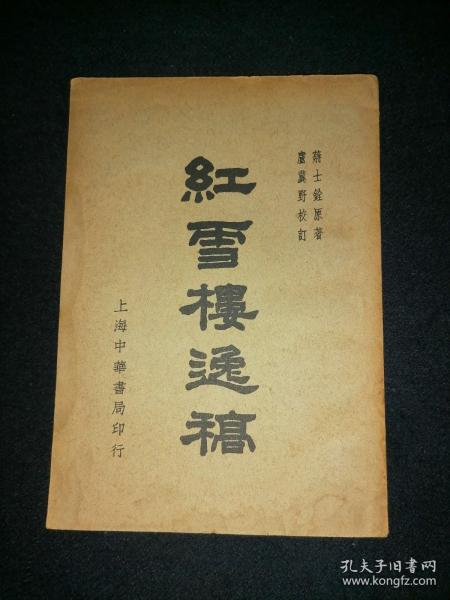 蔣士銓原著
盧冀野校訂
紅雪樓逸稿
上海中華書局印行
孔夫子旧书网
www.kongfz.com